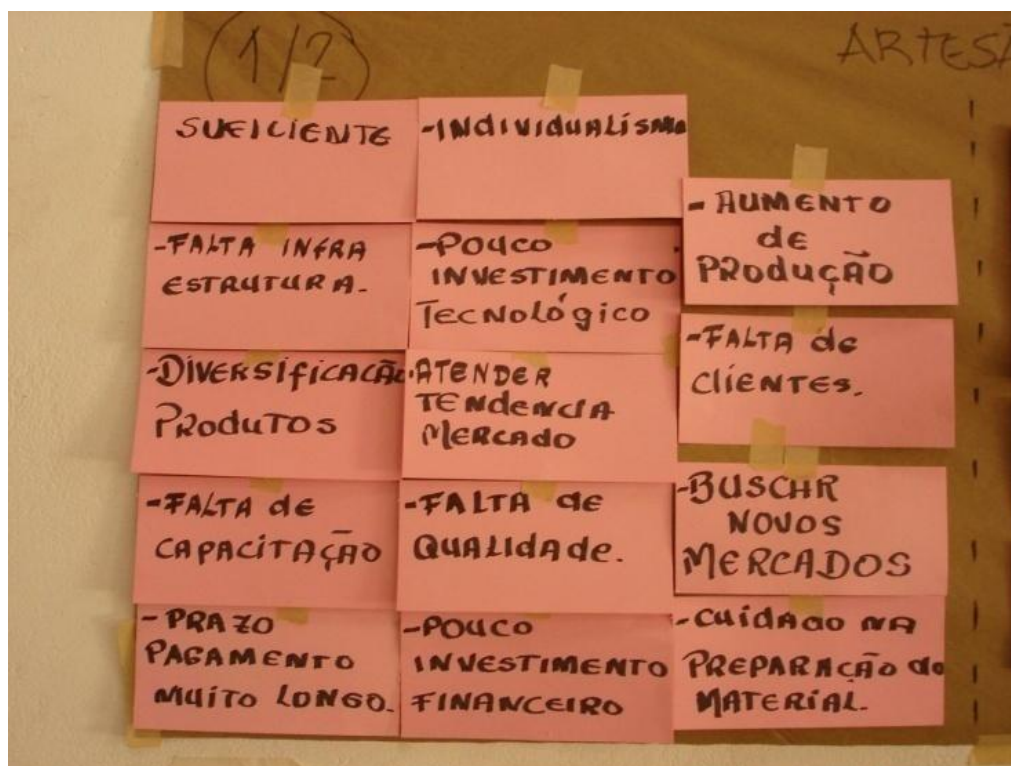 (1/2)
ARTESÃ
SUFICIENTE
-FALTA INFRA
ESTRUTURA.
-DIVERSIFICAÇÃO
PRODUTOS
-FALTA de
CAPACITAÇÃO
-PRAZO
PAGAMENTO
MUITO LONGO.
-INDIVIDUALISMO
-POUCO
INVESTIMENTO
TECNOLÓGICO
-ATENDER
TENDENCIA
MERCADO
-FALTA de
QUALIDADE.
-POUCO
INVESTIMENTO
FINANCEIRO
-AUMENTO
de
PRODUÇÃO
-FALTA de
CLIENTES.
-BUSCAR
NOVOS
MERCADOS
-CUIDADO NA
PREPARAÇÃO do
MATERIAL.